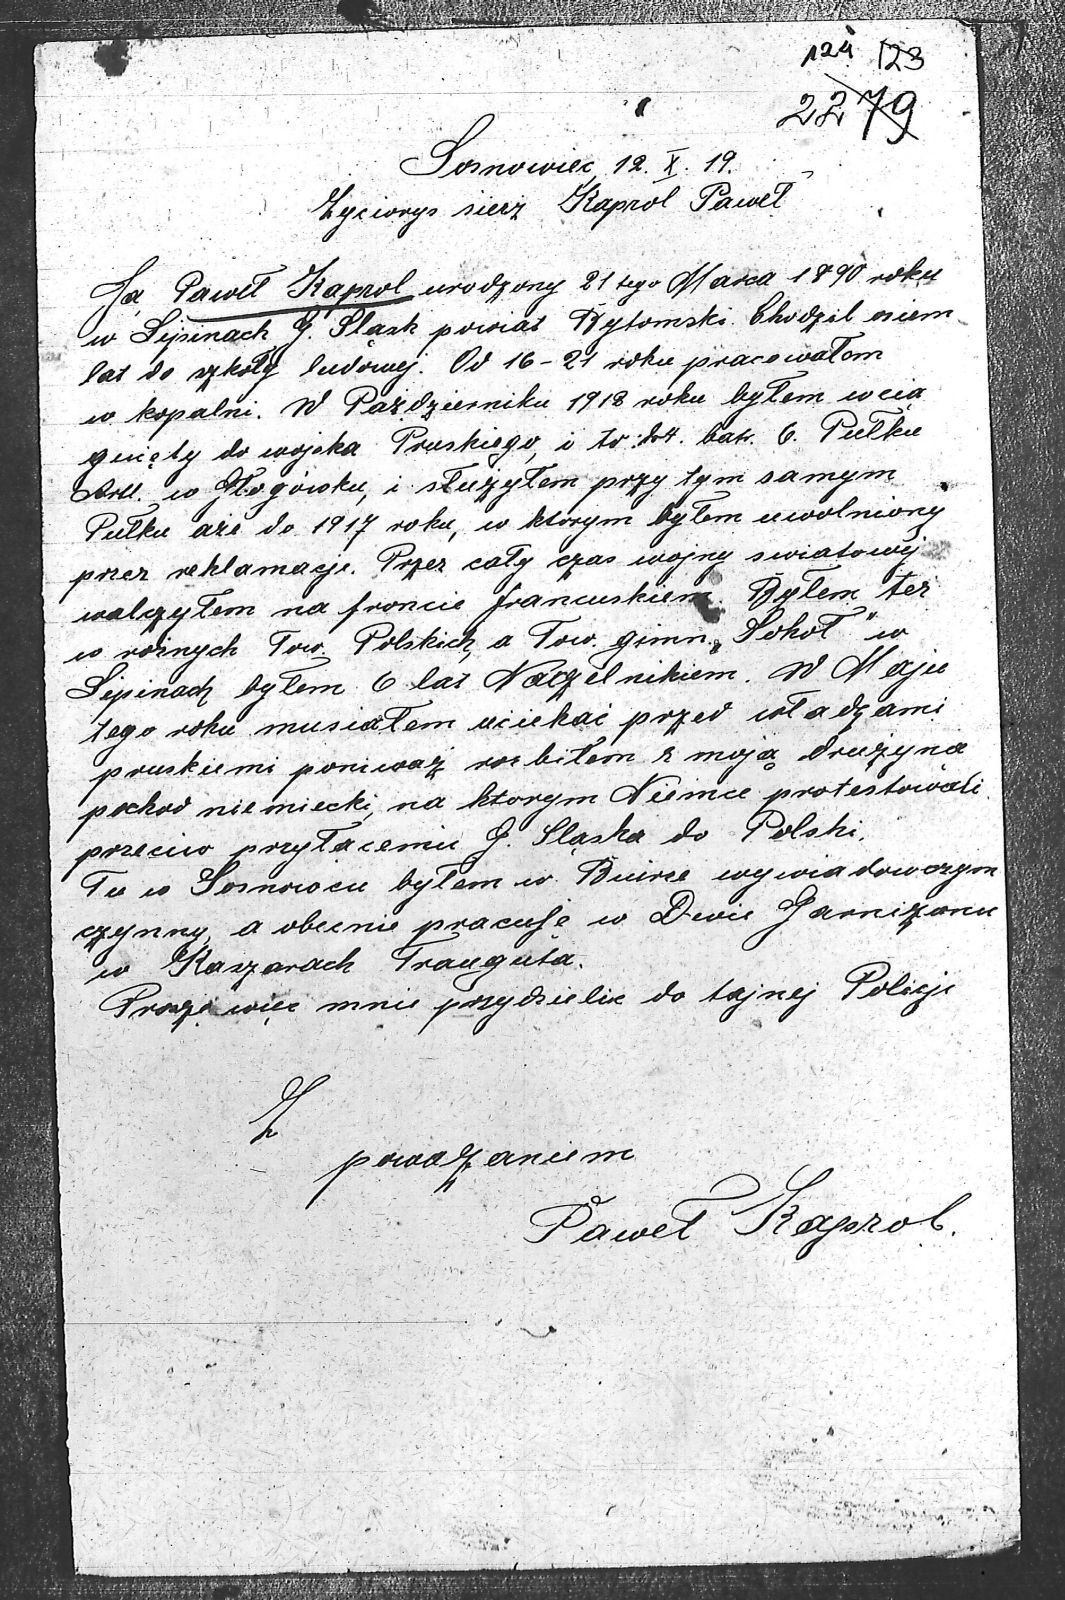 124 123
2279
Sosnowiec, 12. X. 19.
Życiorys sierż Kaprol Paweł
Ja Paweł Kaprol urodzony 21 tego Marca 1890 roku
w Lipinach G. Śląsk powiat Bytomski. Chodził osiem
lat do szkoły ludowej. Od 16-21 roku pracowałem
w kopalni. W Październiku 1912 roku byłem wcią
gnięty do wojska Pruskiego, i to: do 4. bat. 6. Pułku
Artl. w Głogówku, i służyłem przy tym samym
Pułku aże do 1917 roku, w którym byłem uwolniony
przez reklamacje. Przez cały czas wojny swiatowej
walczyłem na froncie francuskiem. Byłem też
w rożnych Tow. Polskich, a Tow. gimn. „Sokoł" w
Lipinach byłem 6 lat Naczelnikiem. W Maju
tego roku musiałem uciekać przed władzami
pruskiemi ponieważ rozbiłem z moją drużyna
pochod niemiecki, na ktorym Niemce protestowali
przeciw przyłaceniu G. Sląska do Polski.
Tu w Sosnowcu byłem w Biurze wywiadowczym
czynny, a obecnie pracuje w Dwie Garnizonu
w Kaszarach Trauguta.
Proszę więc mnie przydzielic do tajnej Policji
Z
poważaniem
Paweł Kaprol.